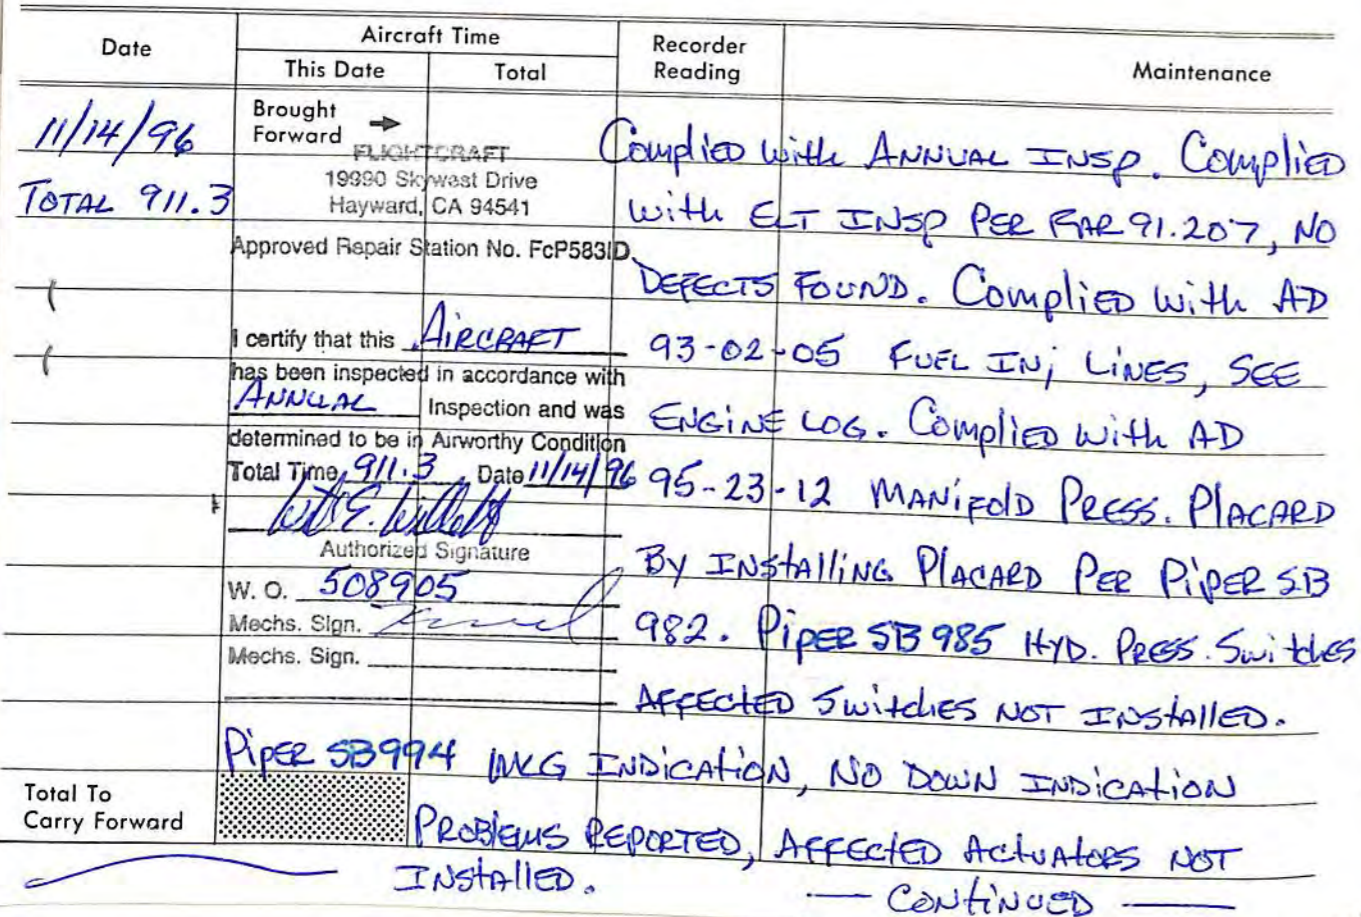 Date
Aircraft Time
This Date
Total
Recorder
Reading
Maintenance
11/14/96
TOTAL 911.3
Brought
Forward
FLIGHTCRAFT
19990 Skywest Drive
Hayward, CA 94541
Approved Repair Station No. FcP583ID
I certify that this AIRCRAFT
has been inspected in accordance with
ANNUAL Inspection and was
determined to be in Airworthy Condition
Total Time 911.3 Date 11/14/96
Authorized Signature
W. O. 508905
Mechs. Sign.
Mechs. Sign.
Complied with ANNUAL INSP. Complied
with ELT INSP PER FAR 91.207, NO
DEFECTS FOUND. Complied with AD
93-02-05 FUEL INj LINES, SEE
ENGINE LOG. Complied with AD
95-23-12 MANIFOLD PRESS. PLACARD
By INSTALLING PLACARD PER PIPER SB
982. PIPER SB 985 HYD. PRESS. Switches
AFFECTED Switches NOT INSTALLED.
PIPER SB994 INDICATION, NO DOWN INDICATION
PROBLEMS REPORTED, AFFECTED ACTUATORS NOT
INSTALLED.
— CONTINUED —
Total To
Carry Forward